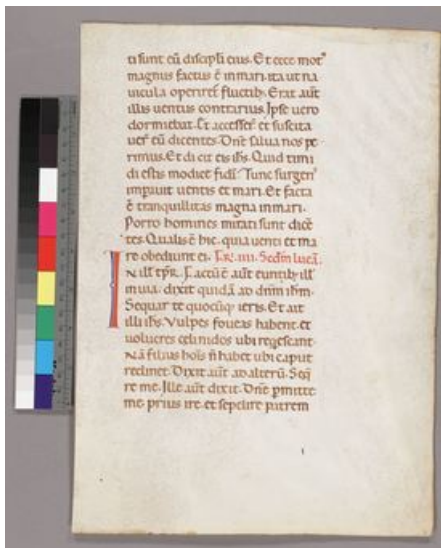 ti sunt eū discipľi eius. Et ecce motꝰ
magnus factus ē in mari. ita ut na
uicula operiret̃ fluctibꝫ. Erat aūt
illis uentus contrarius. Ipse uero
dormiebat. Et accesser̃ et suscita
uer̃ eū dicentes. Dn̄e salua nos pe
rimus. Et dicit eis ih̄s. Quid timi
di estis modice fidi. Tunc surgen̄
imp̄auit uentis et mari. Et facta
ē tranquillitas magna in mari.
Porro homines mirati sunt dicē
tes. Qualis ē hic. quia uenti et ma
re obediunt ei. Fr̃. iiii. Secd̄m lucā.
In ill̄ tp̄r. Factū ē aūt euntibꝫ ill̄
in uia. dixit quidā ad dn̄m ih̄m.
Sequar te quocūqꝫ ieris. Et ait
illi ih̄s. Vulpes foueas habent. et
uolucres celi nidos ubi reqescant
Nā filius hois n̄ habet ubi caput
reclinet. Dixit aūt ad alterū. Seq̄
re me. Ille aūt dixit. Dn̄e p̄mitte
me prius ire. et sepelire patrem